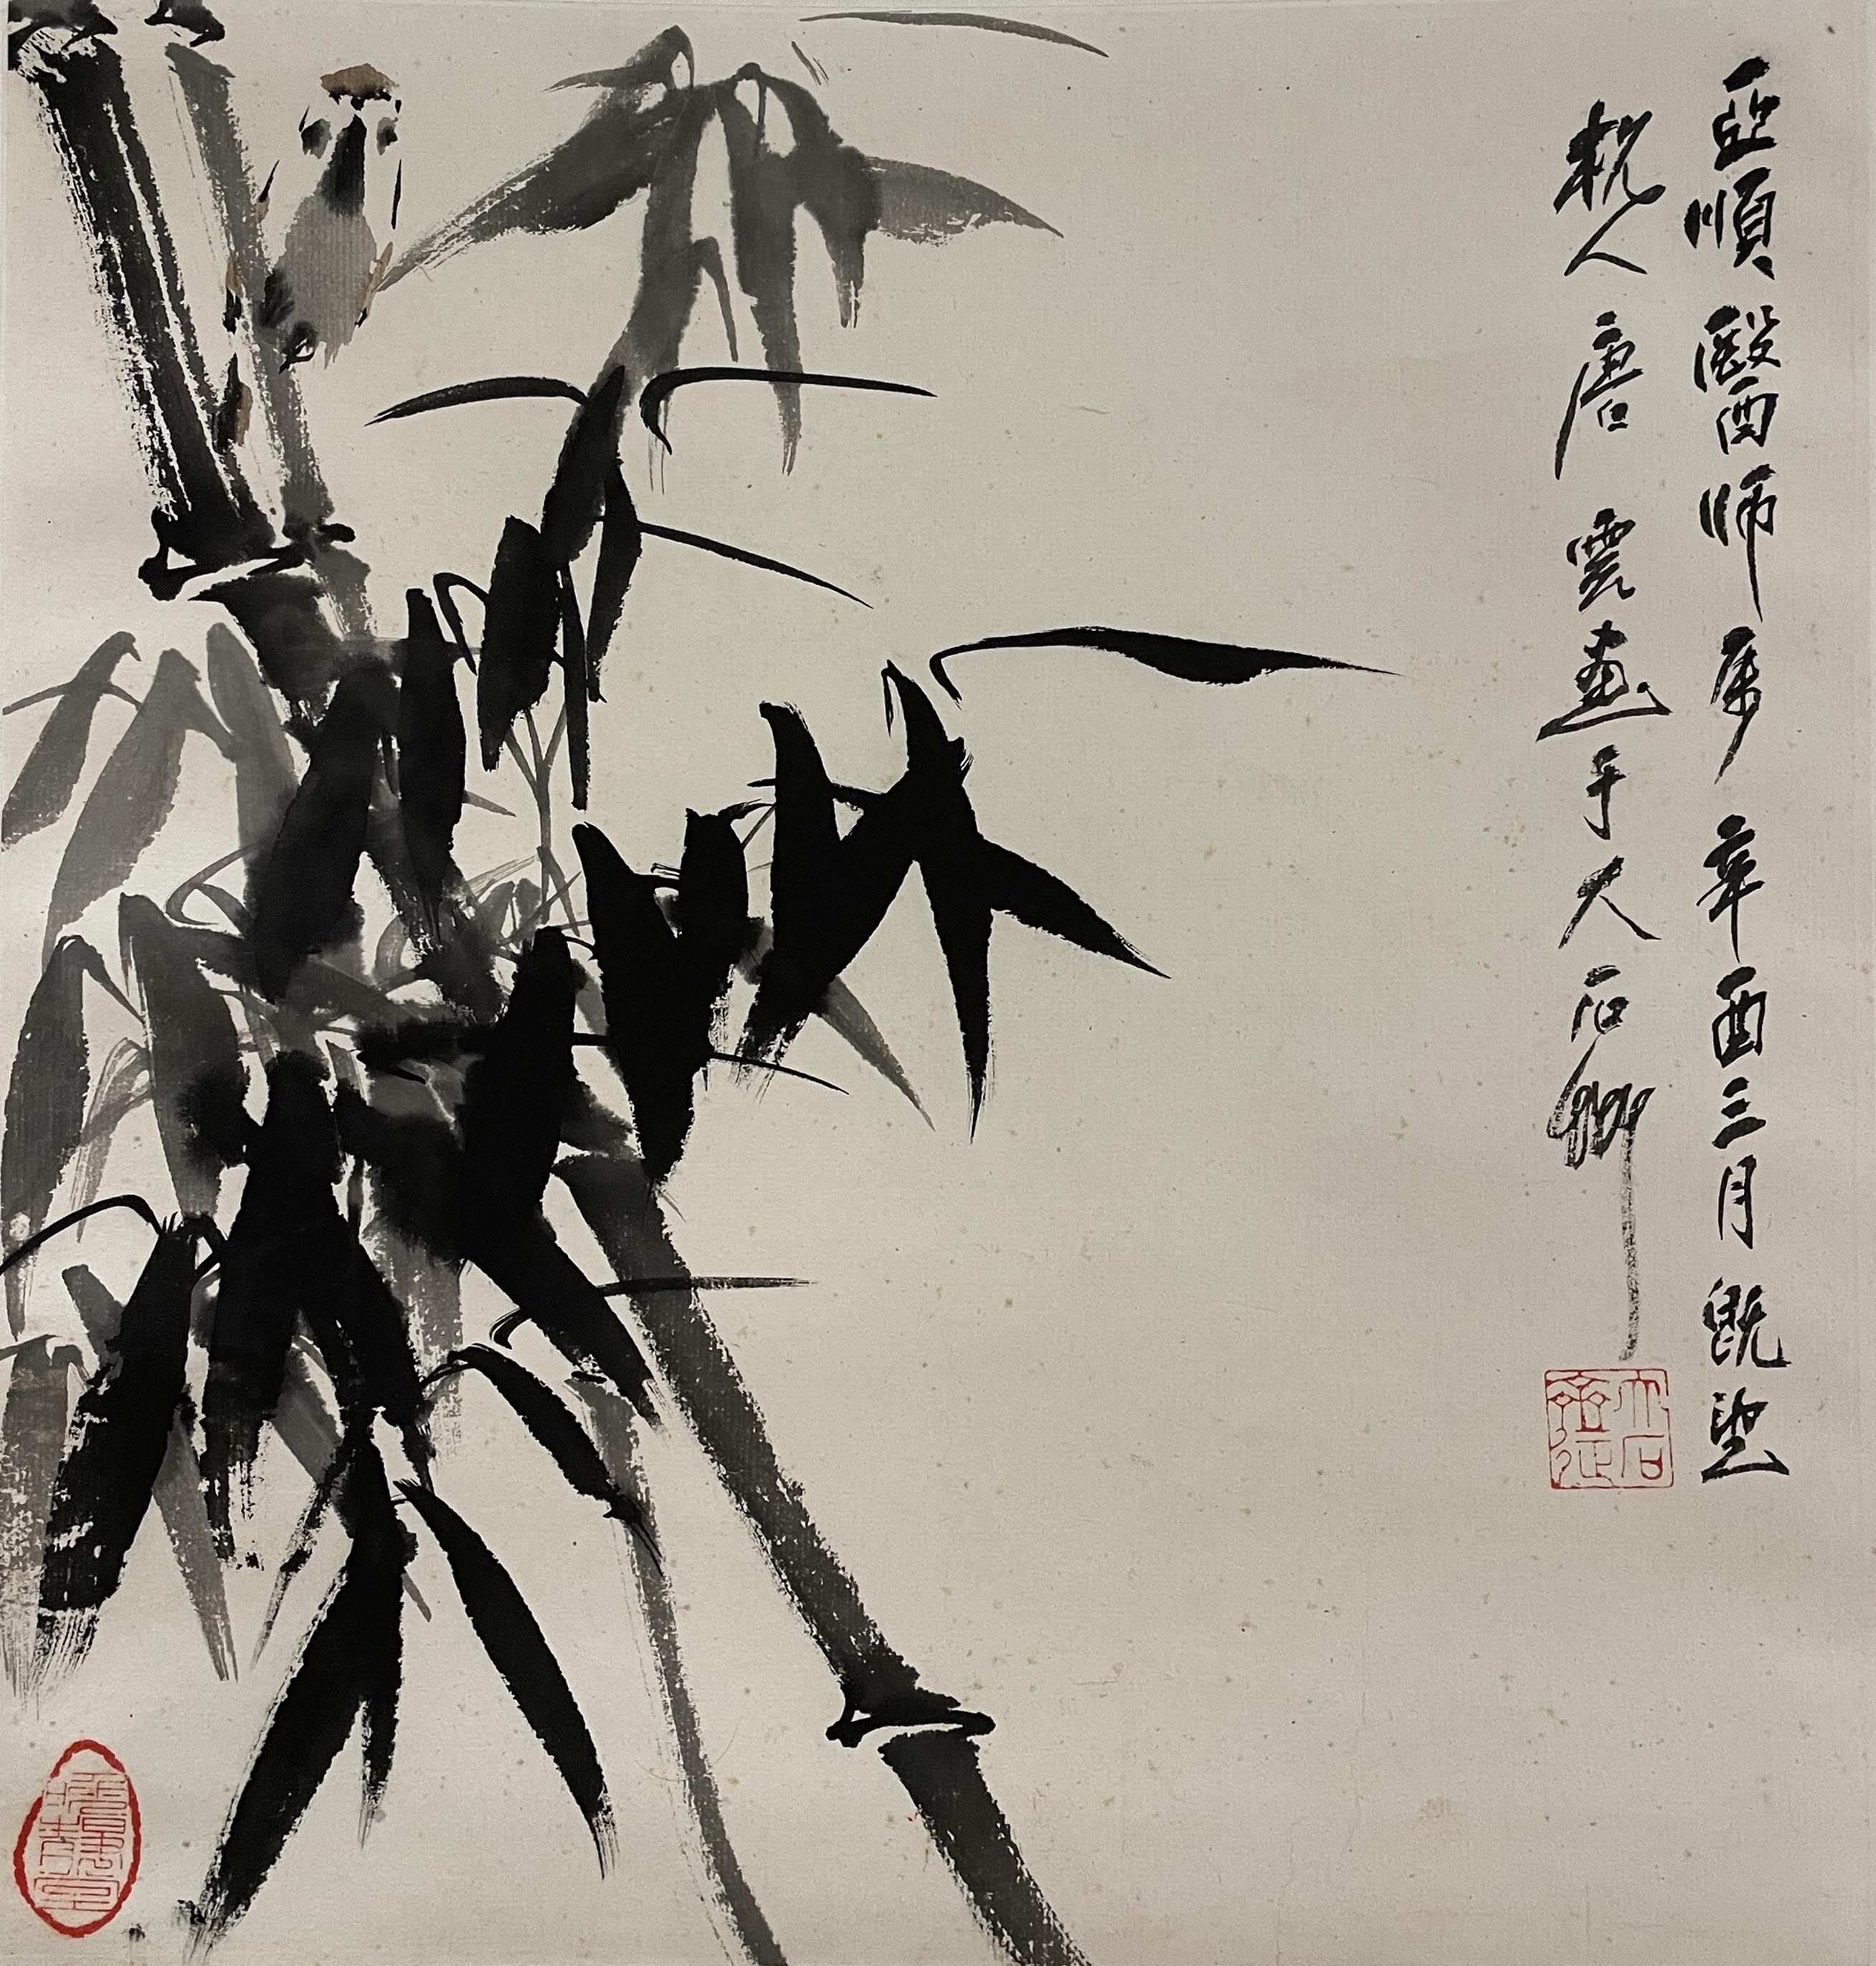 亞順醫師属 辛酉三月既望
杭人唐雲畫于大石齋